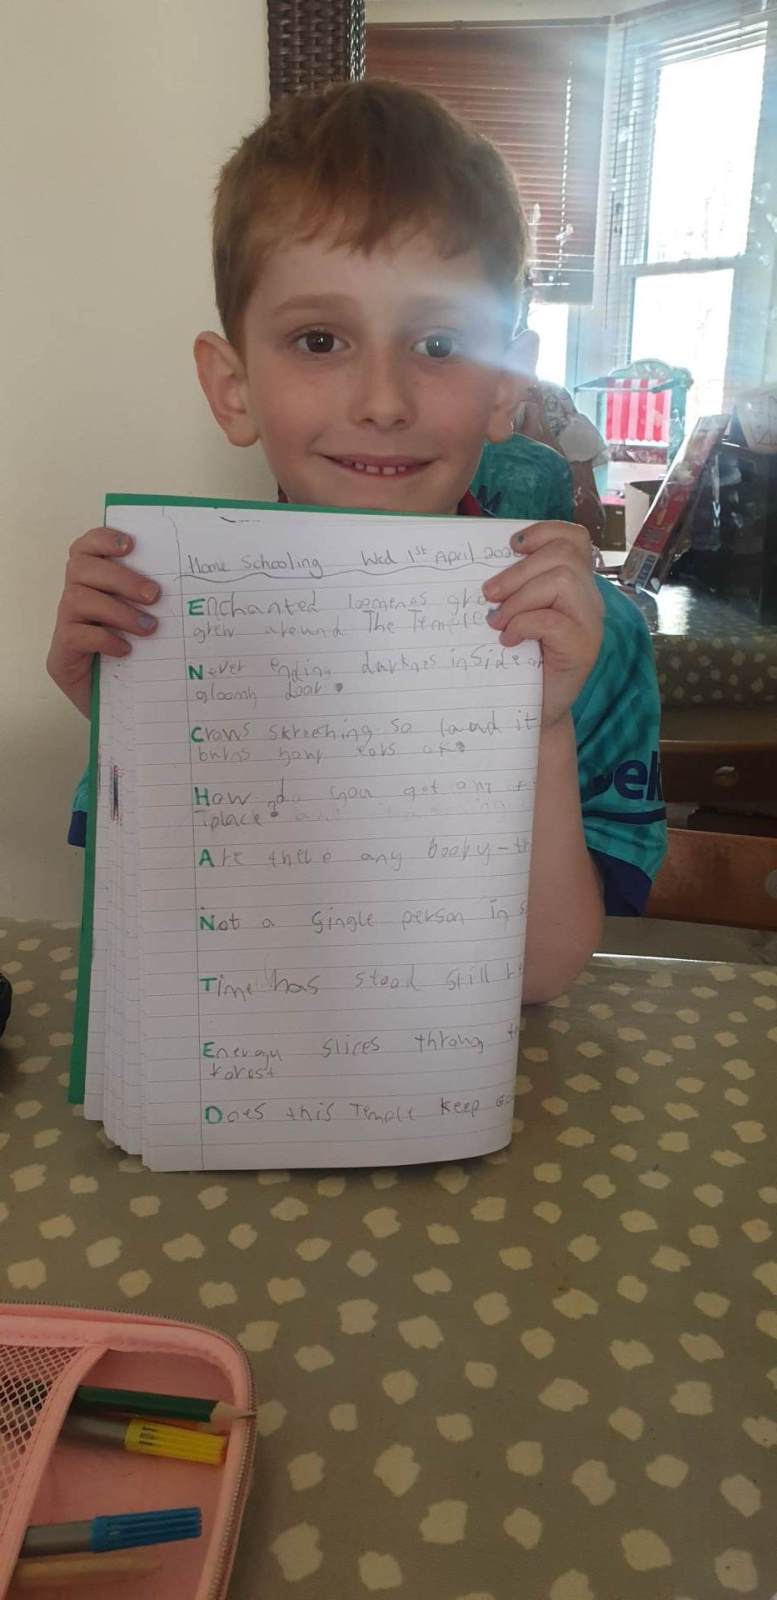 Home Schooling Wed 1st April 202
Enchanted gro
grew around The Temple
Never ending darknes inside
gloomy door.
Crows skreching so it
burns your ears
How do you get
place?
Are there any booby-t
Not a single person in s
Time has stood still
Energy slices throug t
forest
Does this Temple keep